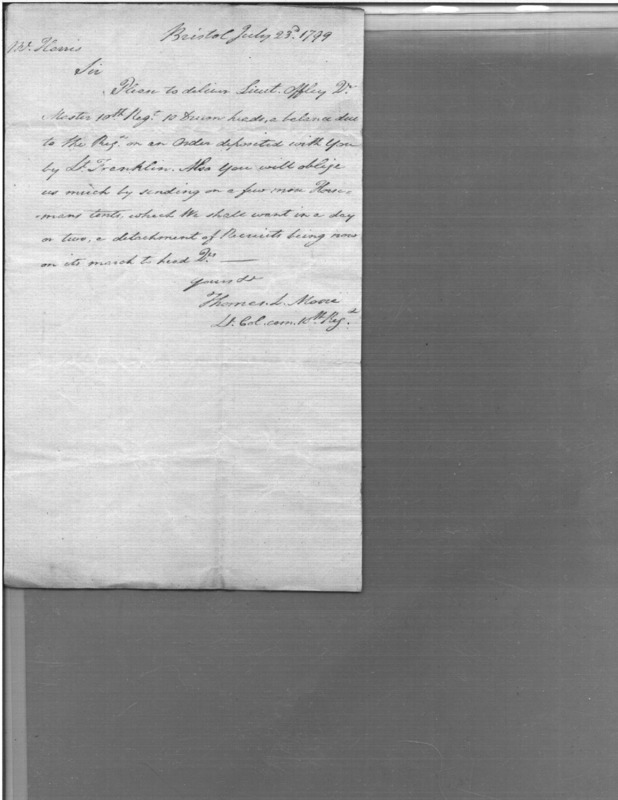 Bristol July 23d. 1799
Mr. Harris
Sir
Please to deliver Lieut. Offley Qr.
Master 10th Regt. 10 Drum heads, a balance due
to the Regt. on an order deposited with you
by Lt. Franklin. Also you will oblige
us much by sending on a few more Horse-
mans tents, which we shall want in a day
or two, a detachment of Recruits being now
on its march to head Qrs
yours &
Thomas L. Moore
Lt. Col. com. 10th Regt.